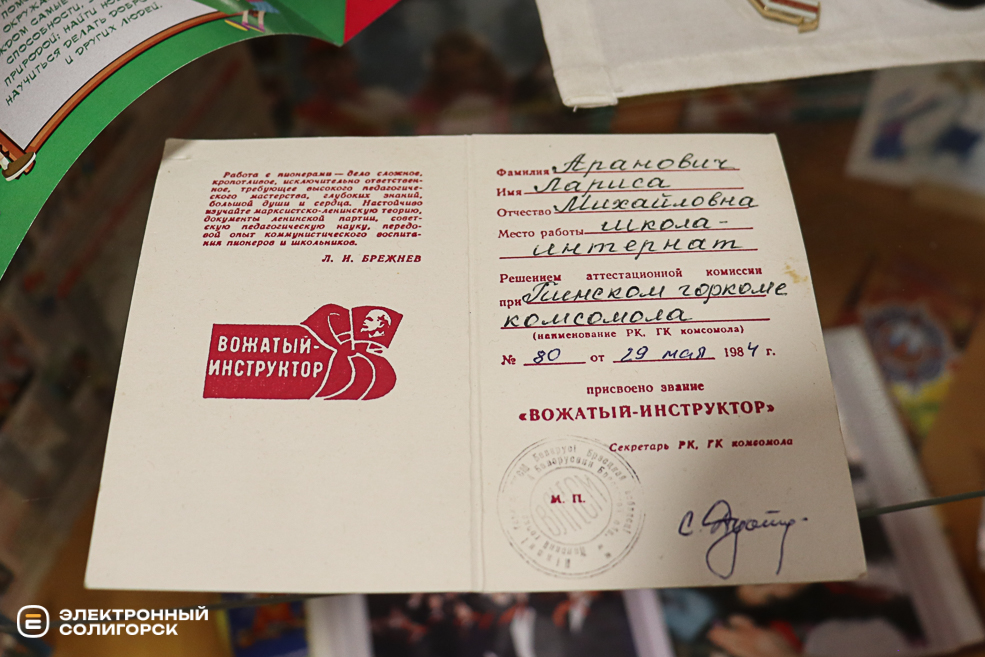 ОКРУЖА
КРОМ САМЫЕ
СПОСОБНОСТИ,
ПРИРОДОЙ: НАЙТИ НОВ
НАУЧИТЬСЯ ДЕЛАТЬ ДОБР
И ДРУГИХ ЛЮДЕЙ.
Работа с пионерами — дело сложное,
кропотливое, исключительно ответствен-
ное, требующее высокого педагогиче-
ского мастерства, глубоких знаний,
большой души и сердца. Настойчиво
изучайте марксистско-ленинскую теорию,
документы ленинской партии, совет-
скую педагогическую науку, передо-
вой опыт коммунистического воспита-
ния пионеров и школьников.
Л. И. БРЕЖНЕВ
ВОЖАТЫЙ-
ИНСТРУКТОР
Фамилия Аранович
Имя Лариса
Отчество Михайловна
Место работы школа-
интернат
Решением аттестационной комиссии
при Пинском горкоме
комсомола
(наименование РК, ГК комсомола)
№ 80 от 29 мая 1984 г.
присвоено звание
«ВОЖАТЫЙ-ИНСТРУКТОР»
Секретарь РК, ГК комсомола
М. П.
ВЛКСМ
ЭЛЕКТРОННЫЙ
СОЛИГОРСК